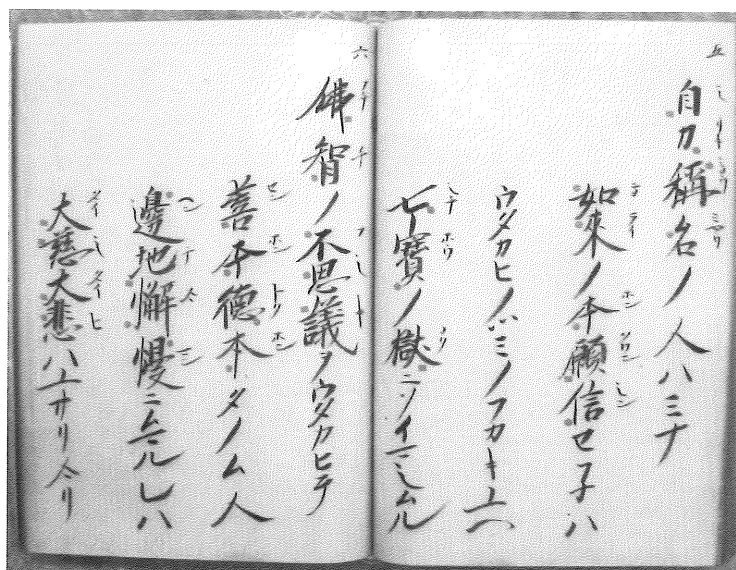 五
自力稱名ノ人ハミナ
如來ノ本願信セ子ハ
ウタカヒノツミノフカキユヘ
七寶ノ獄ニソイマシムル
六
佛智ノ不思議ヲウタカヒテ
善本德本タノム人
邊地懈慢ニムマルレハ
大慈大悲ハエサリケリ